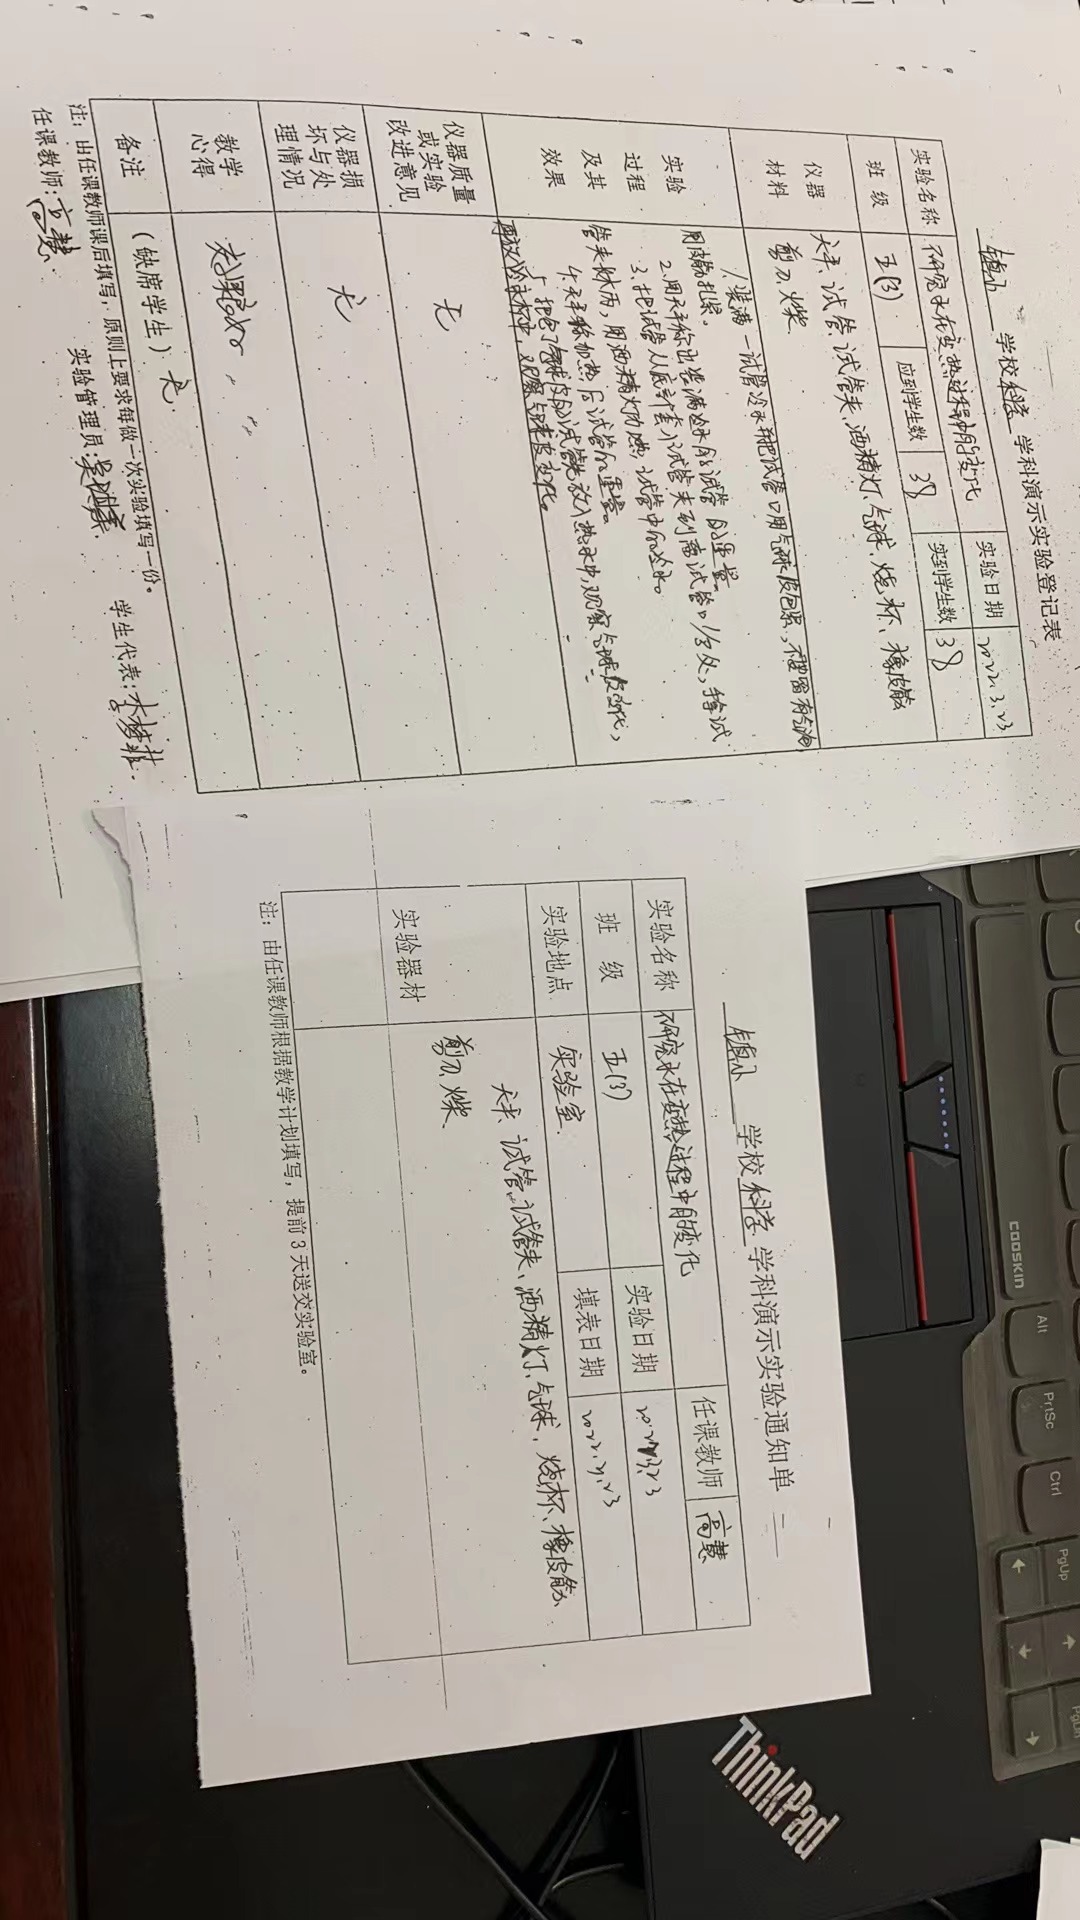 学校科学学科演示实验登记表
实验名称 研究水在变热过程中的变化 实验日期 2022.3.23
班级 五(3) 应到学生数 38 实到学生数 38
仪器材料 天平、试管、试管夹、酒精灯、气球、烧杯、橡皮筋
剪刀、火柴
实验过程及其效果
1.装满一试管冷水,把试管口用气球皮包紧,不要留有气泡
用橡皮筋扎紧。
2.用天平称出装满冷水的试管的重量
3.把试管从底部套入试管夹到离试管口 处,
管夹 ,用酒精灯加热试管中的冷水。
4.天平称加热后试管的重量。
5.把包了气球皮的试管先放入热水中,观察气球皮变化,
再放入冷水杯中,观察气球皮变化。
仪器质量或实验改进意见 无
仪器损坏与处理情况 无
教学心得
备注 (缺席学生) 无
注:由任课教师课后填写,原则上要求每做一次实验填写一份。
任课教师:高慧 实验管理员: 学生代表:李梦菲
学校科学学科演示实验通知单
实验名称 研究水在变热过程中的变化 任课教师 高慧
班级 五(3) 实验日期 2022.3.23
实验地点 实验室 填表日期 2022.3.23
实验器材 天平、试管、试管夹、酒精灯、气球、烧杯、橡皮筋
剪刀、火柴
注:由任课教师根据教学计划填写,提前3天送交实验室。
COOSKIN
Alt
PrtSc
Ctrl
PgUp
ThinkPad